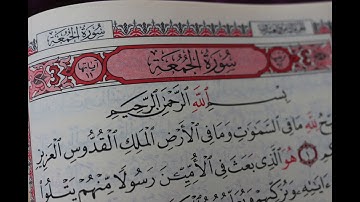 سُورَةُ الْجُمُعَةِ
سُورَةُ الْجُمُعَةِ
آيَاتُهَا ١١
بِسْمِ اللَّهِ الرَّحْمَٰنِ الرَّحِيمِ
يُسَبِّحُ لِلَّهِ مَا فِي السَّمَٰوَٰتِ وَمَا فِي الْأَرْضِ الْمَلِكِ الْقُدُّوسِ الْعَزِيزِ
١ هُوَ الَّذِي بَعَثَ فِي الْأُمِّيِّينَ رَسُولًا مِّنْهُمْ يَتْلُوا
ءَايَٰتِهِ وَيُزَكِّيهِمْ وَيُعَلِّمُهُمُ